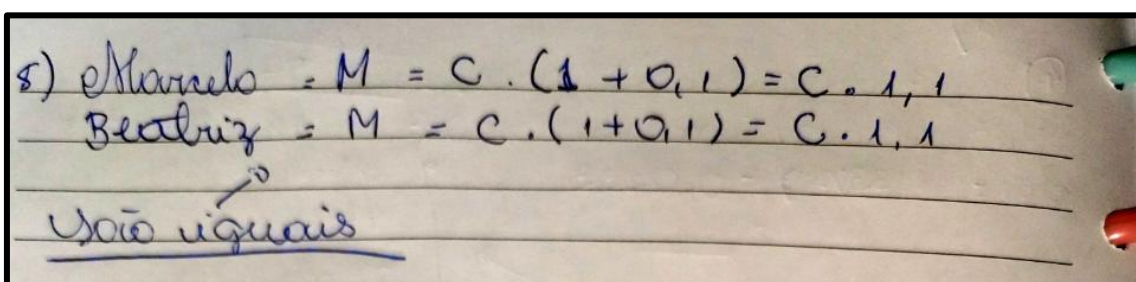 8) Marcelo = M = C . (1 + 0,1) = C . 1,1
Beatriz = M = C . (1+0,1) = C . 1,1
São iguais